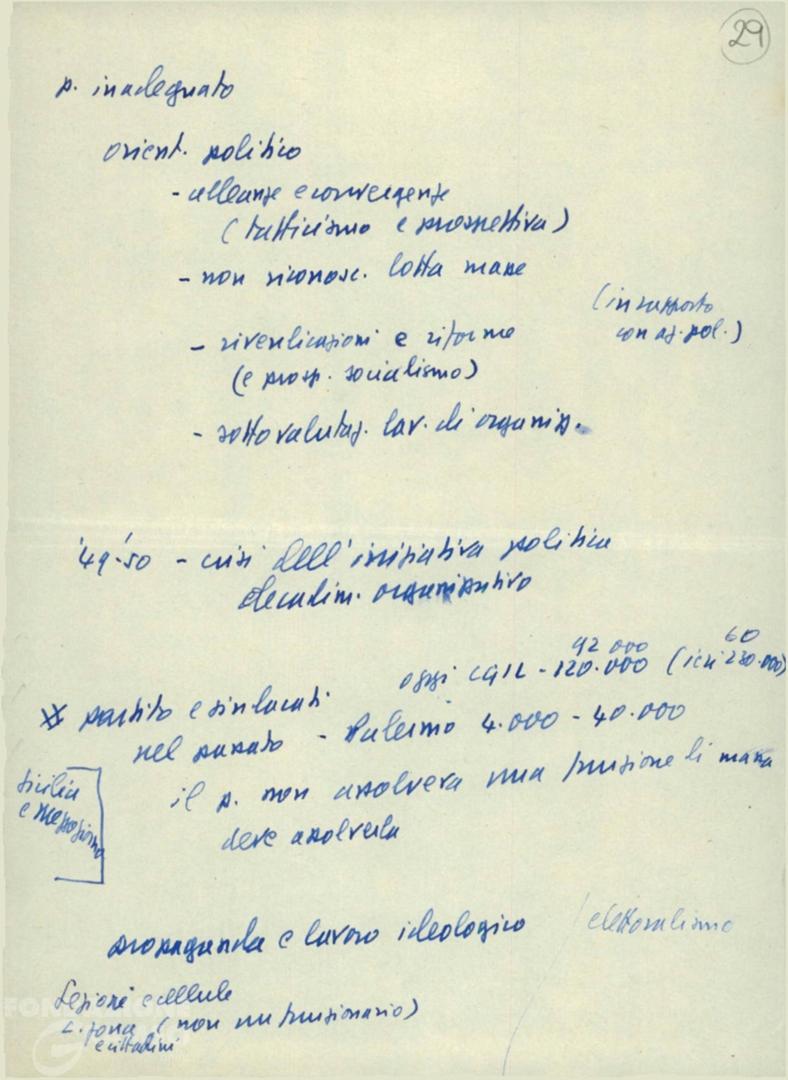 29
p. inadeguato
orient. politico
- alleanze e convergenze
(tatticismo e prospettiva)
- non riconosc. lotta massa
(in rapporto
con az. pol.)
- rivendicazioni e riforme
(e prosp. socialismo)
- sottovalutaz. lav. di organizz.
'49-'50 - crisi dell'iniziativa politica
decadim. organizzativo
92 000 60
oggi CGIL - 120.000 (ieri 230.000)
partito e sindacati
nel passato - Palermo 4.000 - 40.000
Sicilia
e mezzogiorno
il p. non assolveva una funzione di massa
deve assolverla
propaganda e lavoro ideologico / elettoralismo
Sezioni cellule
C. zona (non un funzionario)
e cittadini
FONDAZIONE